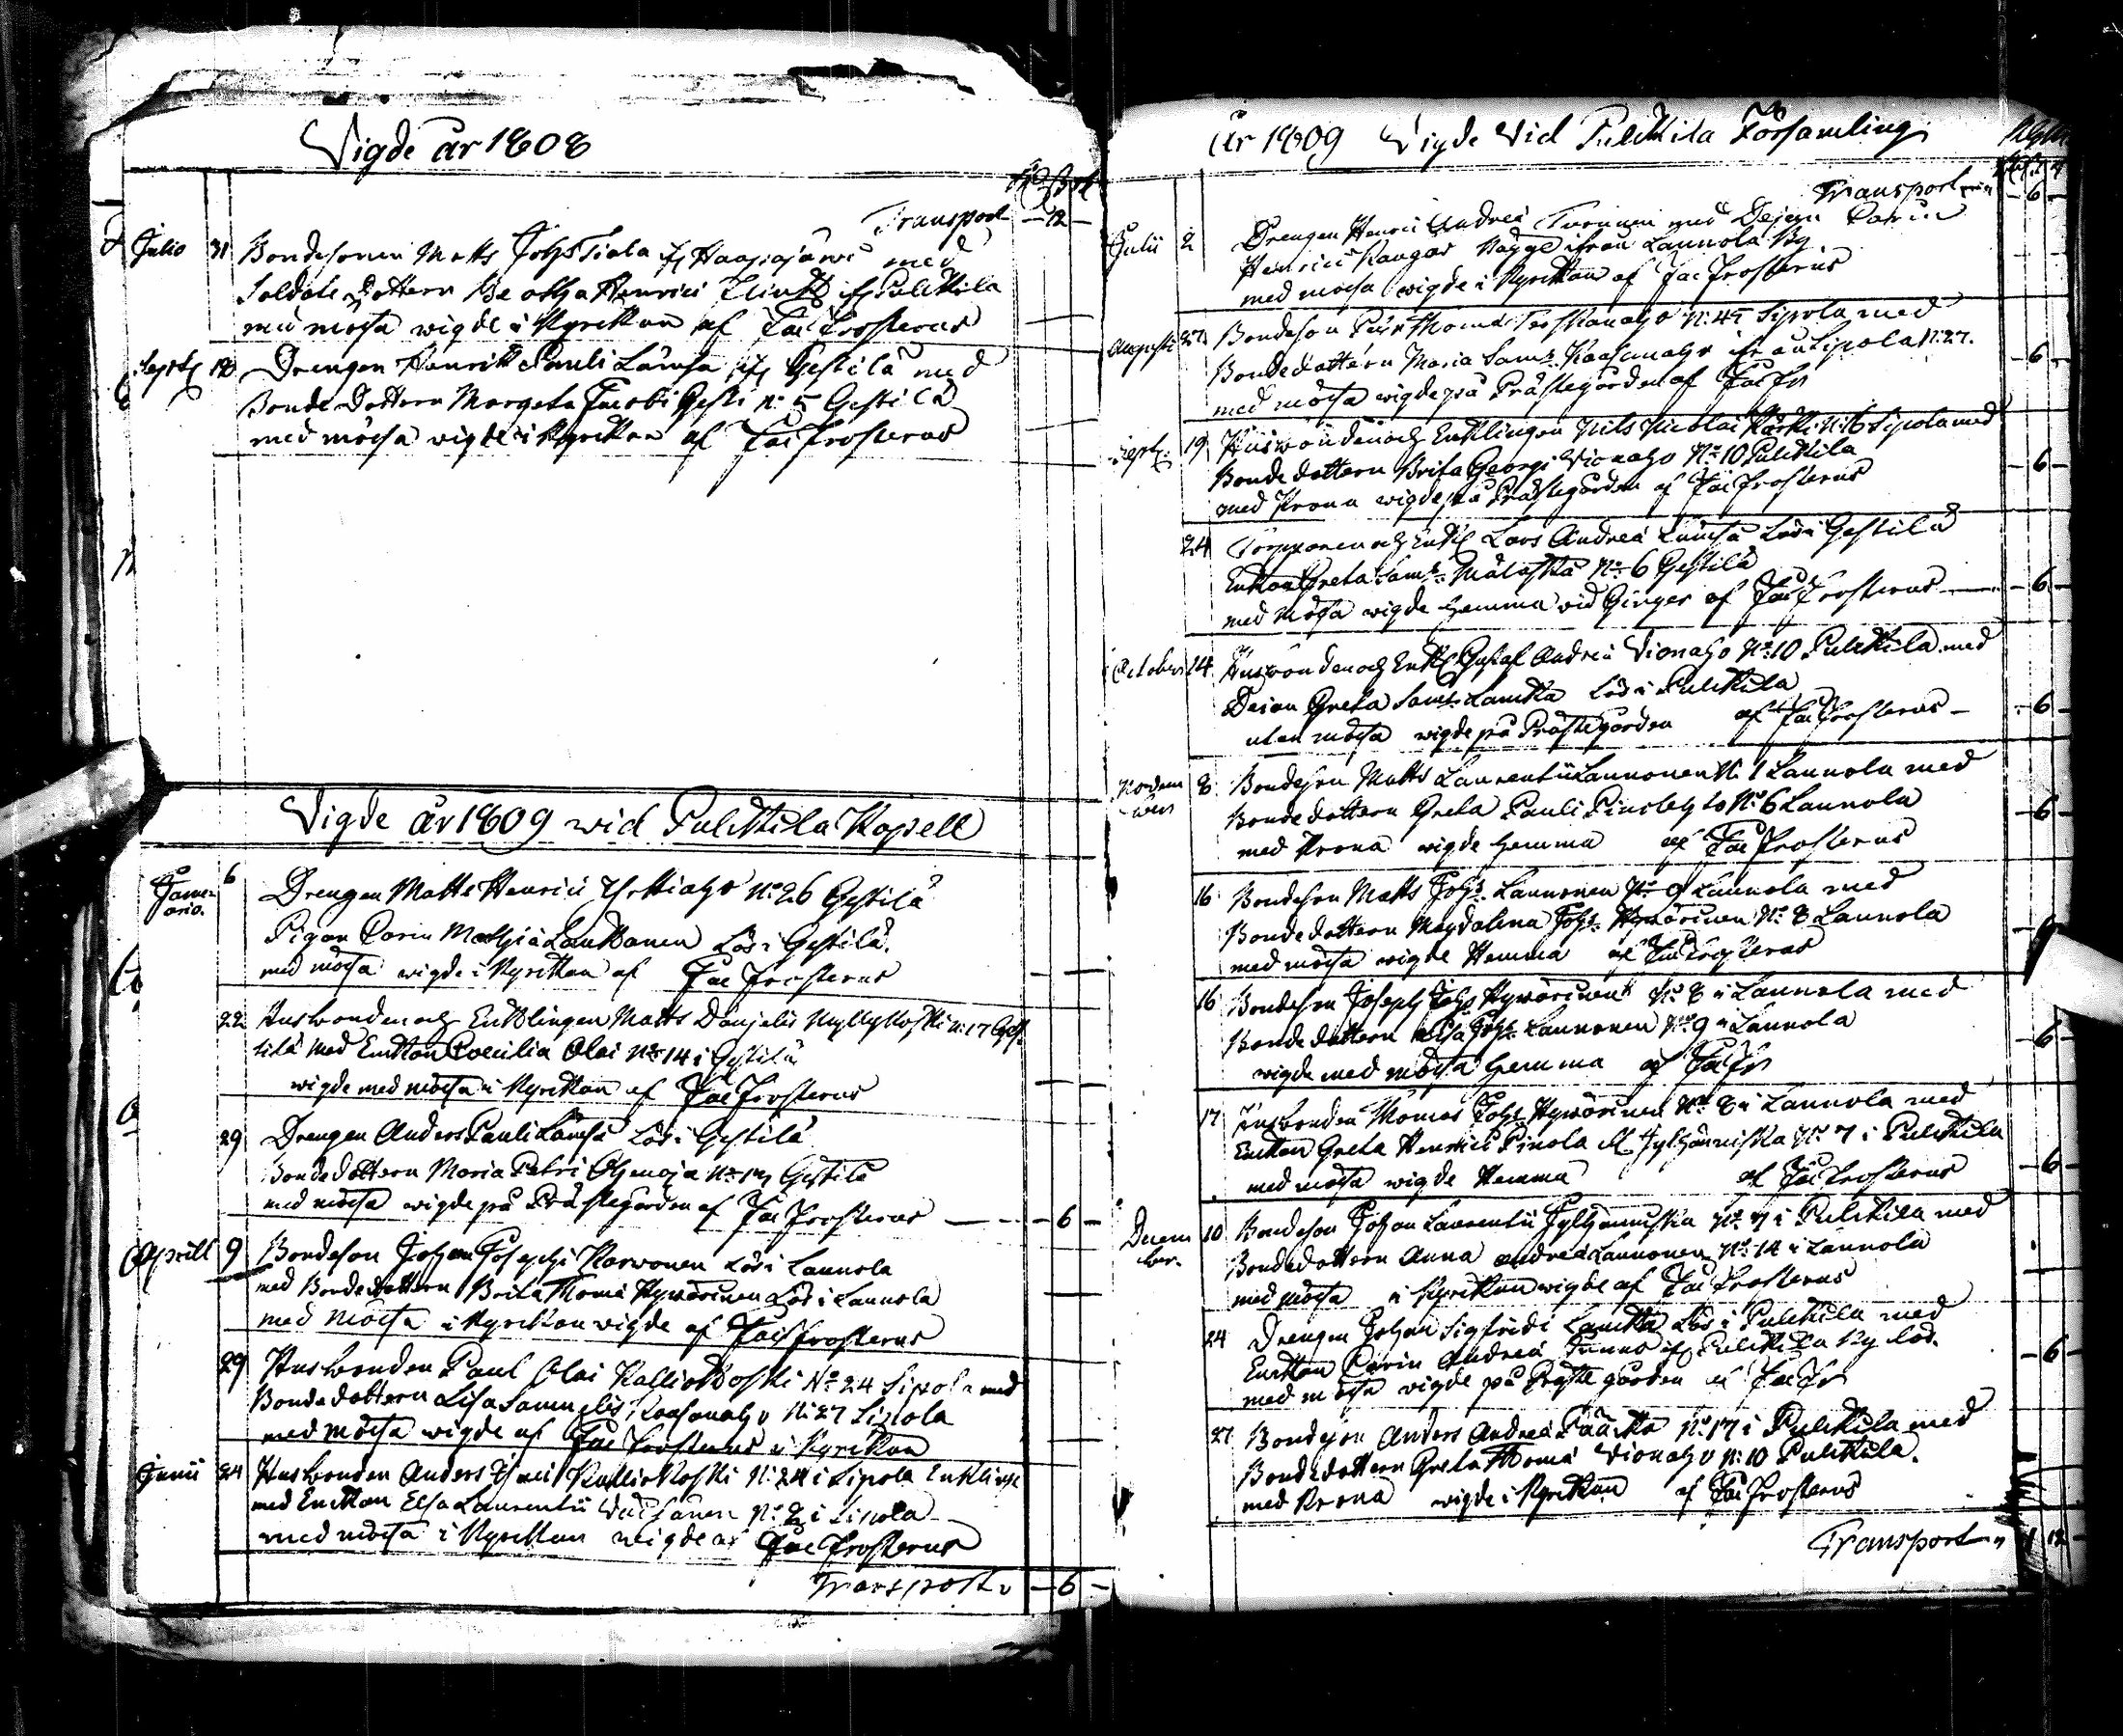 Vigde år 1808
Transport — 12 —
Julio 31 Bondesonen Matts Johs Tiala ifr Haapajärvi med
Soldate Dottern Beatha Henrici Flinck ifr Pulckila
med mössa wigde i Kyrckan af Jac Frosterus
Septr 18 Drengen Henrick Pauli Lämsä ifr Gestilä med
Bonde Dottern Margeta Jacobi Gesti N:o 5 Gestilä
med mössa wigde i Kyrckan af Jac Frosterus
Vigde år 1809 wid Pulckila Kapell
Januario. 6 Drengen Matts Henrici N:o 26 Gestilä
Pigan Carin Mathiæ Lauckanen Lös i Gestilä.
med mössa wigde i Kyrckan af Jac Frosterus
22 Husbonden och Encklingen Matts Danjelis Myllykoski N: 17 Ges-
tilä med Enckan Coecilia Olai N:o 14 i Gestilä
wigde med mössa i Kyrckan af Jac Frosterus
29 Drengen Anders Pauli Lämsä Lös i Gestilä
Bondedottern Maria Petri N:o 19 Gestilä
med mössa wigde på Prästegården af Jac Frosterus — 6 —
Aprill 9 Bondeson Johan Josephi Karwonen Lös i Launola
med Bondedottern Brita Thomæ Hywärinen Lös i Launola
med mössa i Kyrckan wigde af Jac Frosterus
29 Husbonden Paul Olai Kalliokoski N:o 24 Sipola med
Bondedottern Lisa Samuelis N: 27 Sipola
med mössa wigde af Jac Frosterus i Kyrckan
Junii 24 Husbonden Anders Kalliokoski N: 24 i Sipola Encklinge
med Enckan Elsa Laurentii N:o 2 i Sipola
med mössa i Kyrckan wigde af Jac Frosterus
Transport — 6 —
År 1809 Vigde Vid Pulckila Församling
Transport — 6 —
Julii 2 Drengen Henric Andreæ Turunen med Dejan Carin
Henrici Kangas ifrån Launola By.
med mössa wigde i Kyrckan af Jac Frosterus
Augusti 27 Bondeson Thomæ N: 45 Sipola med
Bondedottern Maria Sam:s från Sipola N: 27.
med mössa wigde på Prästegården af Jac Fr — 6 —
Septr. 19 Husbonden och Encklingen Nils Nicolai Kärki N: 16 Sipola med
Bondedottern Brita Georgi Vionaho N:o 10 Pulckila
med Krona wigde på Prästegården af Jac Frosterus — 6 —
24 Torpparen och Enckl Lars Andreæ Lämsä Lös i Gestilä
Enckan Greta Sam:s Mälaskä N:o 6 Gestilä
med Mössa wigde hemma vid af Jac Frosterus — 6 —
October 14 Husbonden och Enckl Gustaf Andreæ Vionaho N:o 10 Pulckila med
Dejan Greta Sam:s Lamcka Lös i Pulckila
utan mössa wigde på Prästegården af Jac Frosterus — 6 —
November 8 Bondeson Matts Laurentii Launonen N: 1 Launola med
Bondedottern Greta Pauli N:o 6 Launola
med Krona wigde hemma af Jac Frosterus — 6 —
16 Bondeson Matts Joh:s Launonen N:o 9 Launola med
Bondedottern Magdalena Joh:s Hywärinen N:o 8 Launola
med mössa wigde Hemma af Jac Frosterus
16 Bondeson Joseph Johs Hywärinen N:o 8 i Launola med
Bondedottern Elsa Johs Launonen N:o 9 i Launola
wigde med mössa hemma af Jac Fr — 6 —
17 Husbonden Thomas Johs Hywärinen N:o 8 i Launola med
Enckan Greta Henrici Pirola N:o 7 i Pulckila
med mössa wigde Hemma af Jac Frosterus — 6 —
December. 10 Bondeson Johan Laurentii N:o 7 i Pulckila med
Bondedottern Anna Andreæ Launonen N:o 14 i Launola
med mössa i Kyrckan wigde af Jac Frosterus
24 Drengen Johan Sigfridi Lamcka Lös i Pulckila med
Enckan Carin Andreæ ifr Pulckila By lös.
med mössa wigde på Prästegården af Jac Fr — 6 —
27 Bondeson Anders Andreæ N:o 17 i Pulckila med
Bondedottern Greta Thomæ Vionaho N: 10 Pulckila.
med Krona wigde i Kyrckan af Jac Frosterus
Transport 1 12 —